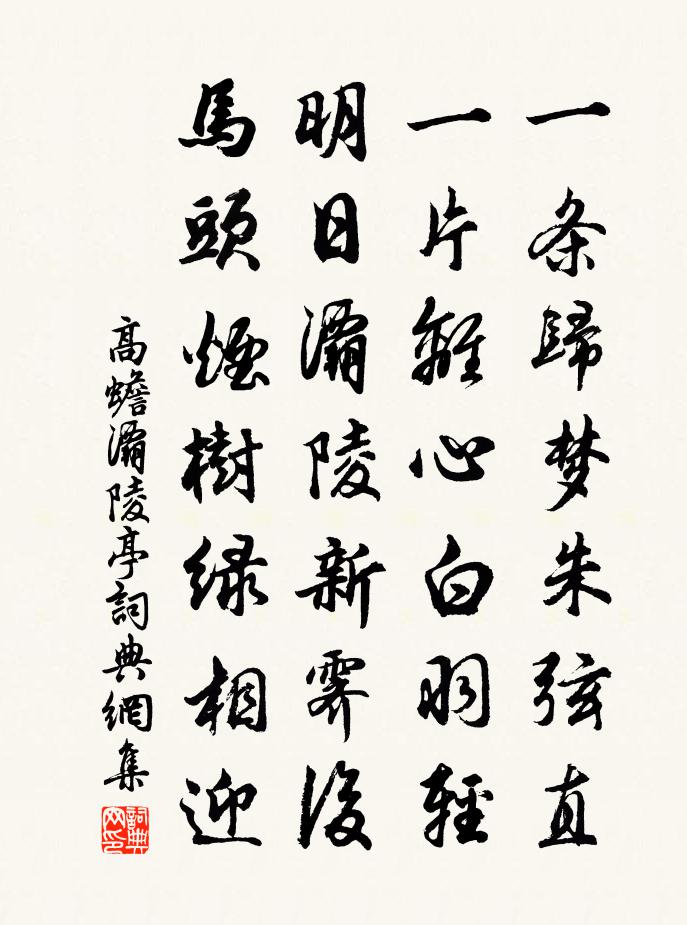 一条歸梦朱弦直
一片離心白羽輕
明日灞陵新霽後
馬頭煙樹绿相迎
高蟾灞陵亭詞典網集
詞典
网印